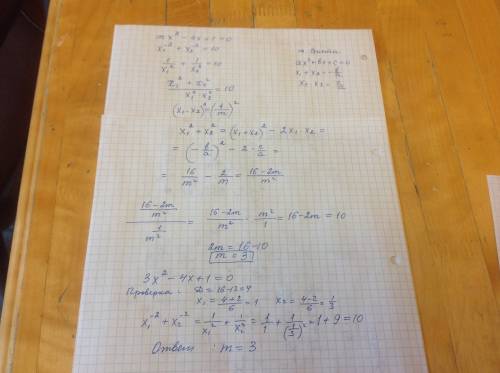 mx² - 4x + 1 = 0
x₁⁻² + x₂⁻² = 10
1/x₁² + 1/x₂² = 10
(x₁² + x₂²)/(x₁² · x₂²) = 10
т. Виета
ax² + bx + c = 0
x₁ + x₂ = -b/a
x₁ · x₂ = c/a
(x₁ · x₂)² = (1/m)²
x₁² + x₂² = (x₁ + x₂)² - 2x₁ · x₂ =
= (-b/a)² - 2 · c/a =
= 16/m² - 2/m = (16 - 2m)/m²
((16 - 2m)/m²)/(1/m²) = (16 - 2m)/m² · m²/1 = 16 - 2m = 10
2m = 16 - 10
m = 3
3x² - 4x + 1 = 0
Проверка: D = 16 - 12 = 4
x₁ = (4 + 2)/6 = 1 x₂ = (4 - 2)/6 = 1/3
x₁⁻² + x₂⁻² = 1/x₁² + 1/x₂² = 1/1 + 1/(1/3)² = 1 + 9 = 10
Ответ: m = 3